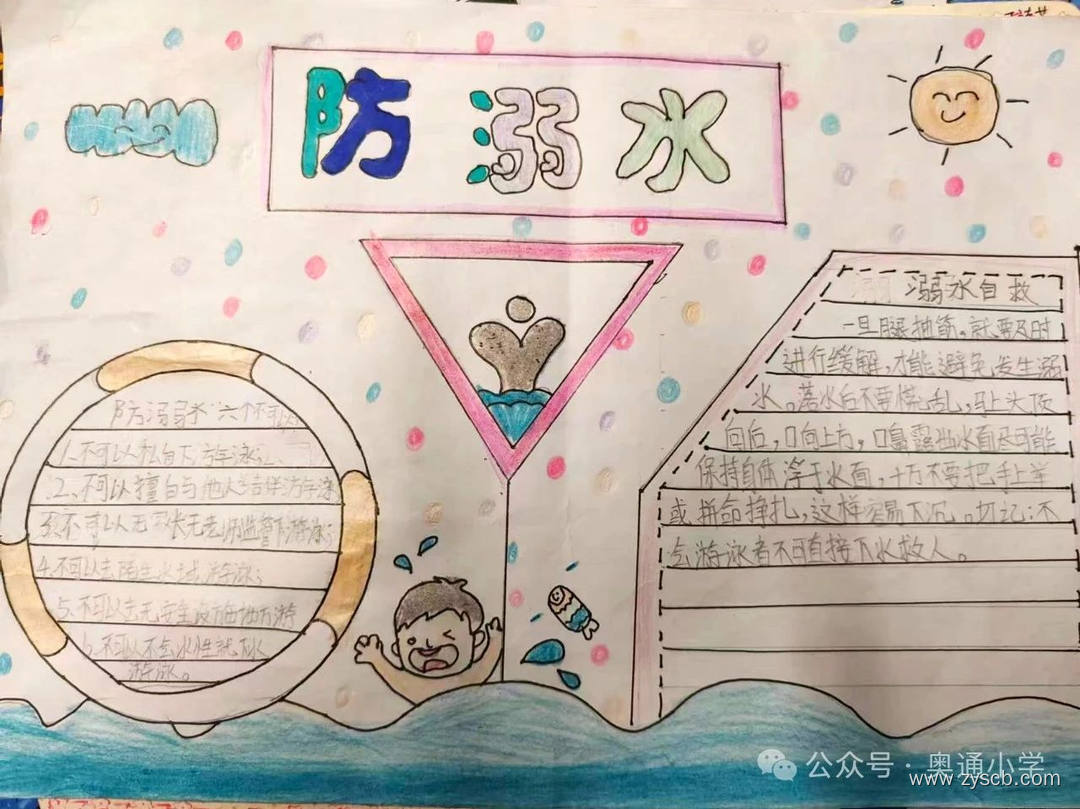 防溺水
防溺水"六个不可以"
1.不可以私自下游泳;
2.不可以擅自与他人结伴游泳
3.不可以无家长无老师监督下游泳;
4.不可以去陌生水域游泳;
5.不可以去无安全设施地方游
6.不可以不会水性就下水
游泳。
溺水自救
一旦腿抽筋。就要及时
进行缓解,才能避免发生溺
水。落水后不要慌乱,马上头顶
向后,口向上方,口鼻露出水面尽可能
保持自体浮于水面,千万不要把手上举
或拼命挣扎,这样容易下沉。切记:不
会游泳者不可直接下水救人。
公众号·奥通小学
www.zyscb.com